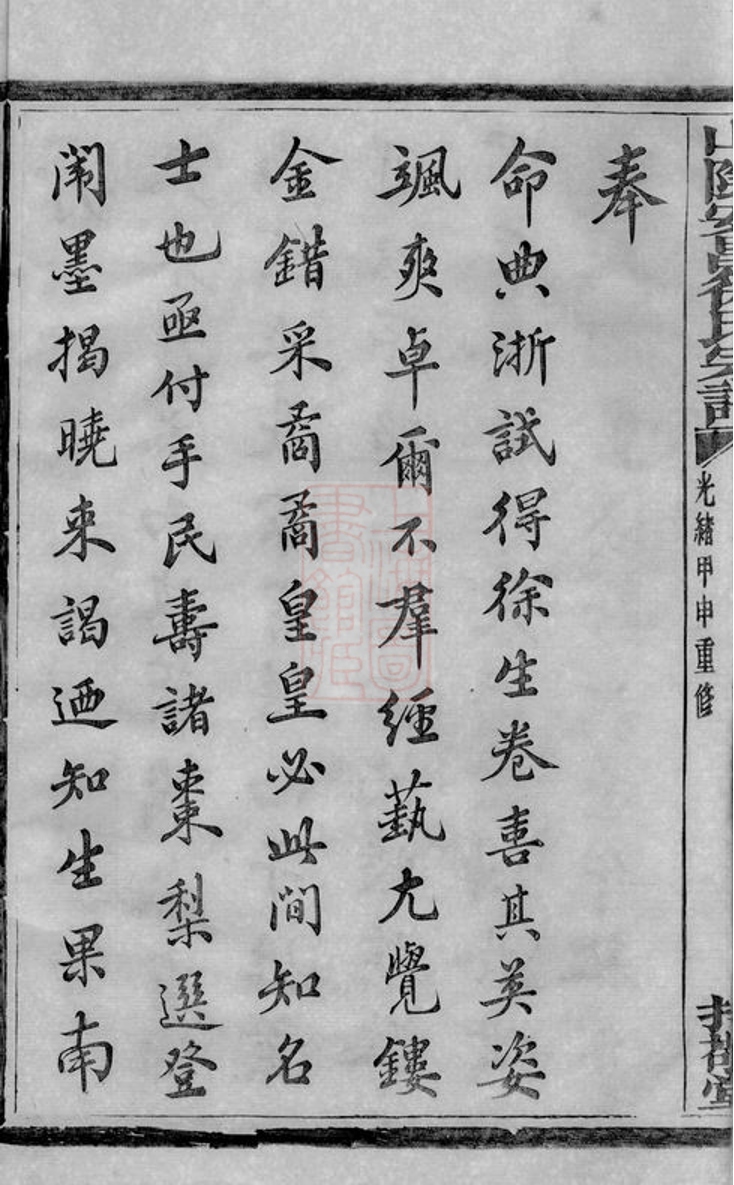 山陰安昌徐氏宗譜
光緒甲申重修
奉
命典浙試得徐生卷喜其英姿
颯爽卓爾不羣經藝尤覺鏤
金錯采矞矞皇皇必此間知名
士也亟付手民壽諸棗梨選登
闈墨揭曉来謁迺知生果南